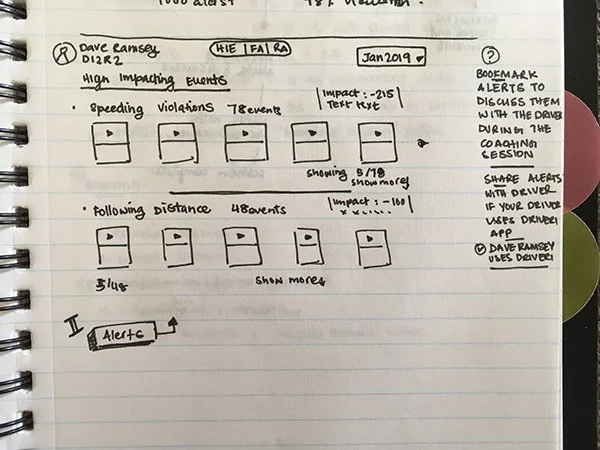 1000 alerts
78% violation.
Dave Ramsey
D12R2
HIE | FA | RA
Jan 2019
High Impacting Events
• Speeding violations 78 events
Impact: -215
Text text
showing 5/78
show more
• Following Distance 48 events
Impact: -100
5/48
show more
II
Alerts
?
BOOKMARK
ALERTS TO
DISCUSS THEM
WITH THE DRIVER
DURING THE
COACHING
SESSION
SHARE ALERTS
WITH DRIVER
IF YOUR DRIVER
USES DRIVERI
APP
DAVE RAMSEY
USES DRIVERI